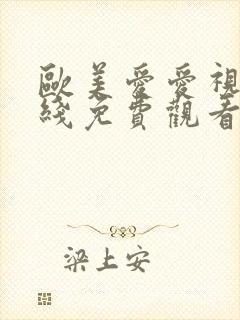 歐美愛愛視
綫免費觀看
梁上安